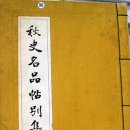 秋史名品帖別集